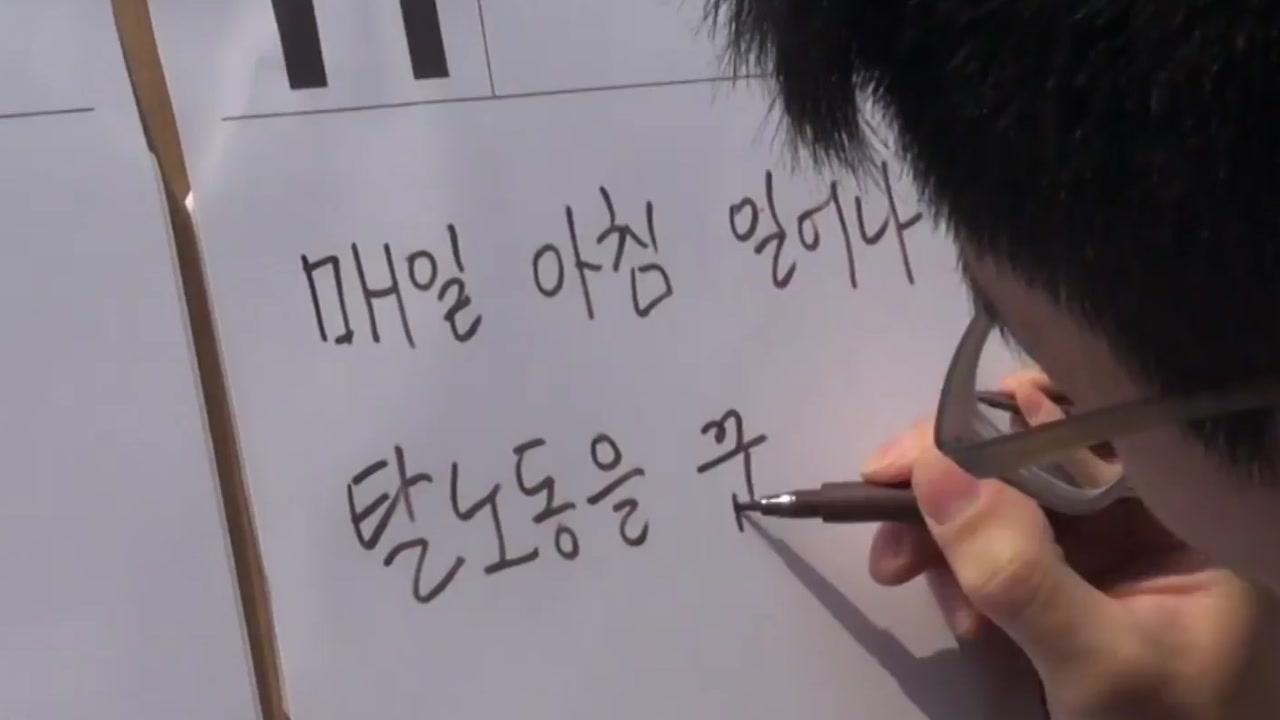 매일 아침 일어나
탈노동을